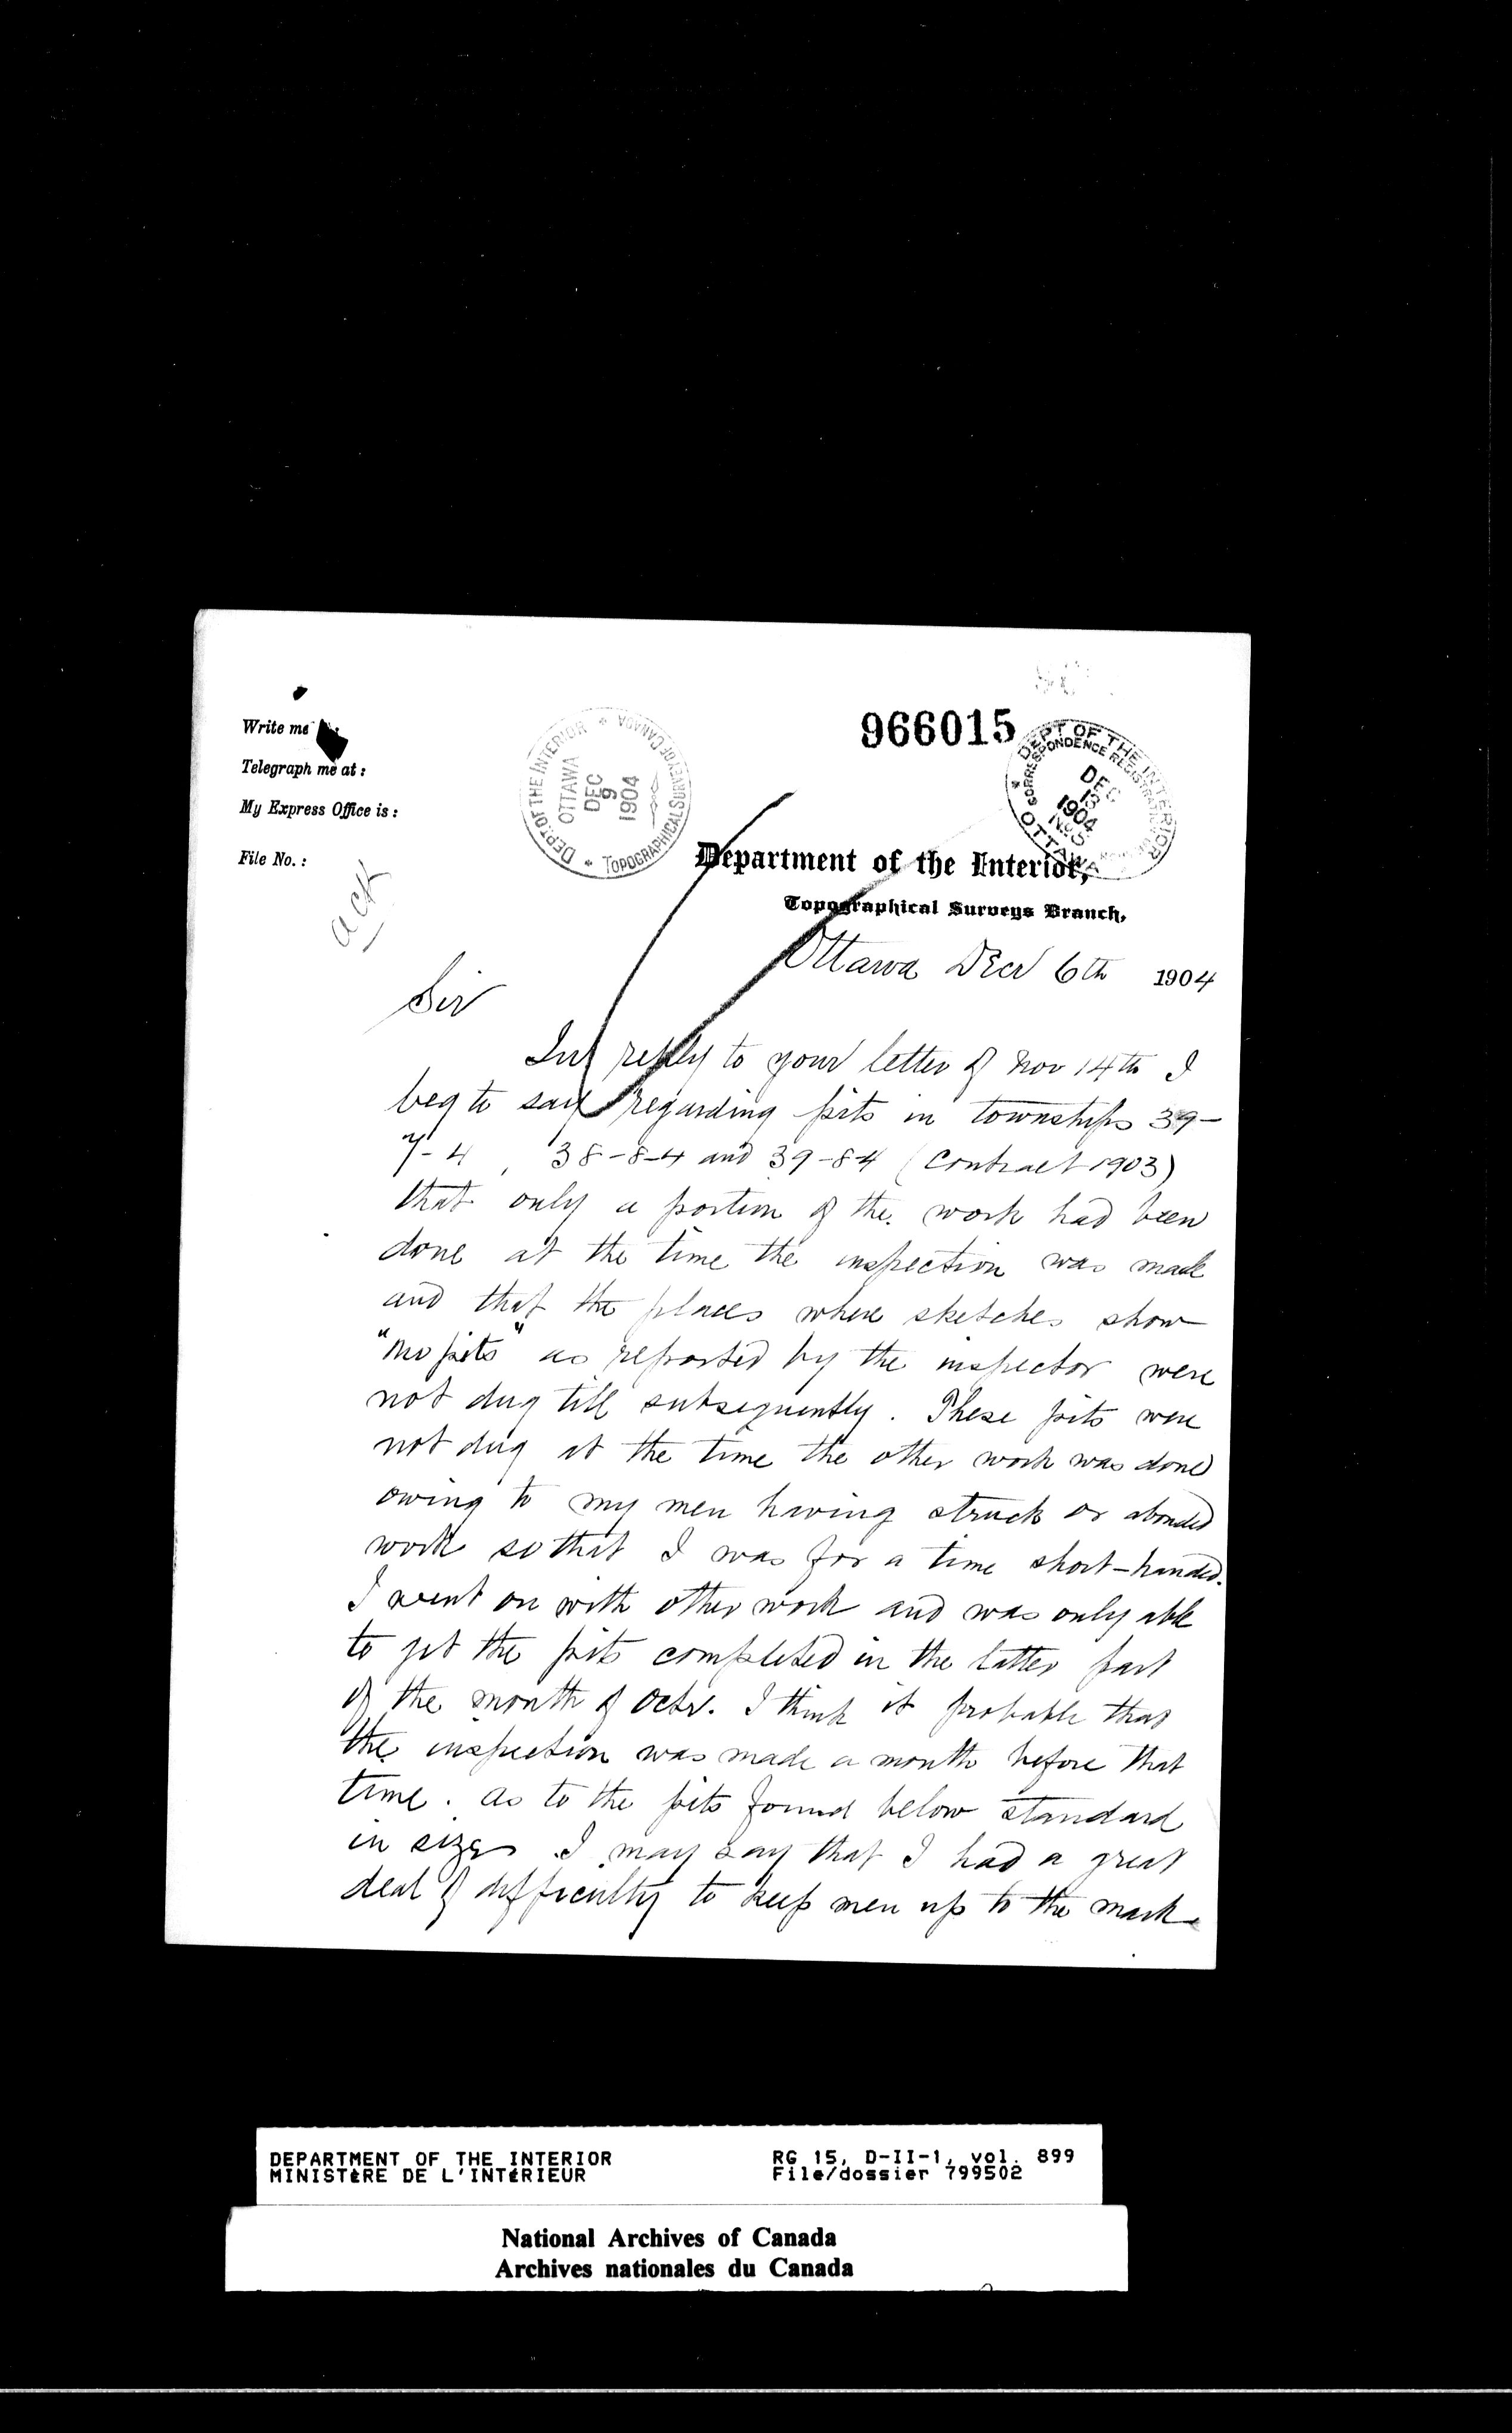 Write me
Telegraph me at :
My Express Office is :
File No. :
ack
DEPT OF THE INTERIOR
OTTAWA
DEC
9
1904
TOPOGRAPHICAL SURVEY OF CANADA
966015
DEPT OF THE INTERIOR
CORRESPONDENCE REGISTRATION
DEC
13
1904
No 5
OTTAWA
Department of the Interior,
Topographical Surveys Branch,
Ottawa Decr 6th 1904
Sir
In reply to your letter of Nov 14th I
beg to say regarding pits in townships 39-
7-4, 38-8-4 and 39-8-4 (Contract 1903)
that only a portion of the work had been
done at the time the inspection was made
and that the places where sketches show
"no pits" as reported by the inspector were
not dug till subsequently. These pits were
not dug at the time the other work was done
owing to my men having struck or abonded
work so that I was for a time short-handed.
I went on with other work and was only able
to get the pits completed in the latter part
of the month of Octr. I think it probable that
the inspection was made a month before that
time. As to the pits found below standard
in size I may say that I had a great
deal of difficulty to keep men up to the mark
DEPARTMENT OF THE INTERIOR
MINISTÈRE DE L'INTÉRIEUR
RG 15, D-II-1, vol. 899
File/dossier 799502
National Archives of Canada
Archives nationales du Canada